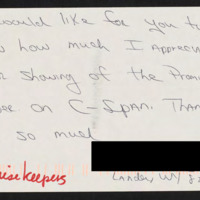 would like for you t
w how much I apprecia
r showing of the Promi
ee on C-Span. Than
so much
ise keepers
Lander, WY